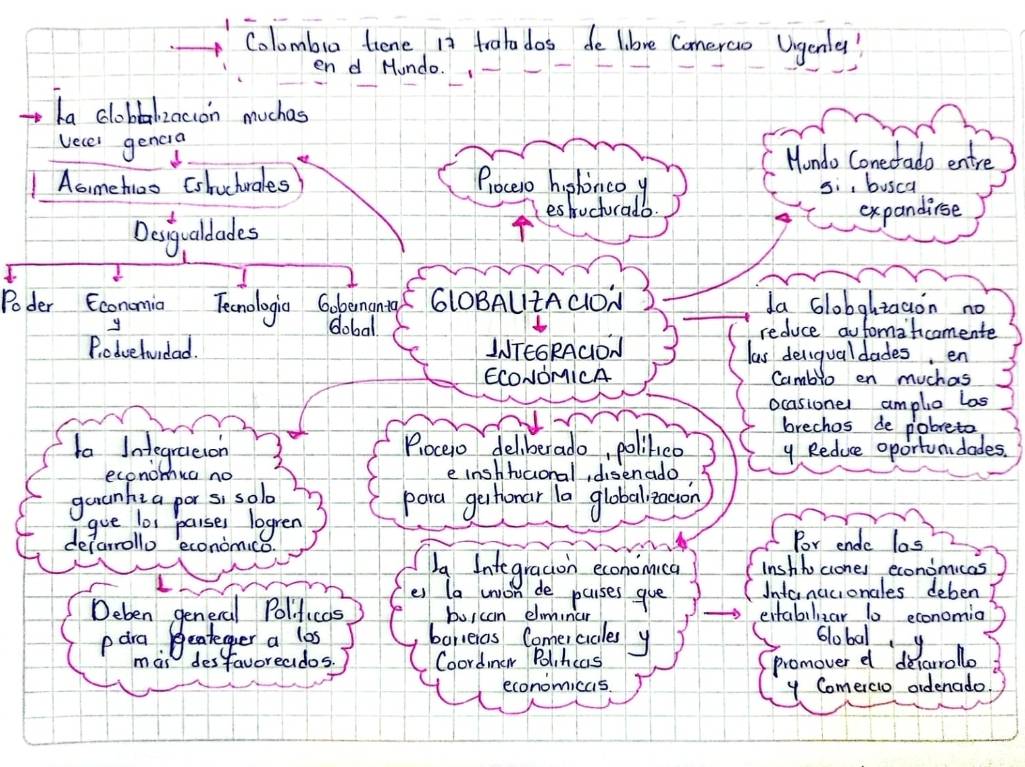 Colombia tiene 17 tratados de libre Comercio Vigentes!
en el Mundo.
La Globalización muchas
veces genera
Asimetrias Estructurales
Desigualdades
Poder
Economia
y
Productividad.
Tecnologia
Gobernanza
Global.
Proceso histórico y
estructurado.
Mundo Conectado entre
si, busca
expandirse
GLOBALIZACIÓN
INTEGRACIÓN
ECONÓMICA
La Globalización no
reduce automáticamente
las desigualdades, en
Cambio en muchas
ocasiones amplia Las
brechas de pobreza
y Reduce oportunidades.
La Integración
económica no
garantiza por si solo
que los paises logren
desarrollo económico.
Deben general Politicas
para proteger a los
más desfavorecidos.
Proceso deliberado, político
e institucional, disenado
para gestionar la globalización
La Integración económica
es la unión de países que
buscan eliminar
barreras Comerciales y
Coordinar Politicas
económicas.
Por ende las
instituciones económicas
Internacionales deben
estabilizar la economia
Global, y
promover el desarrollo
y Comercio ordenado.